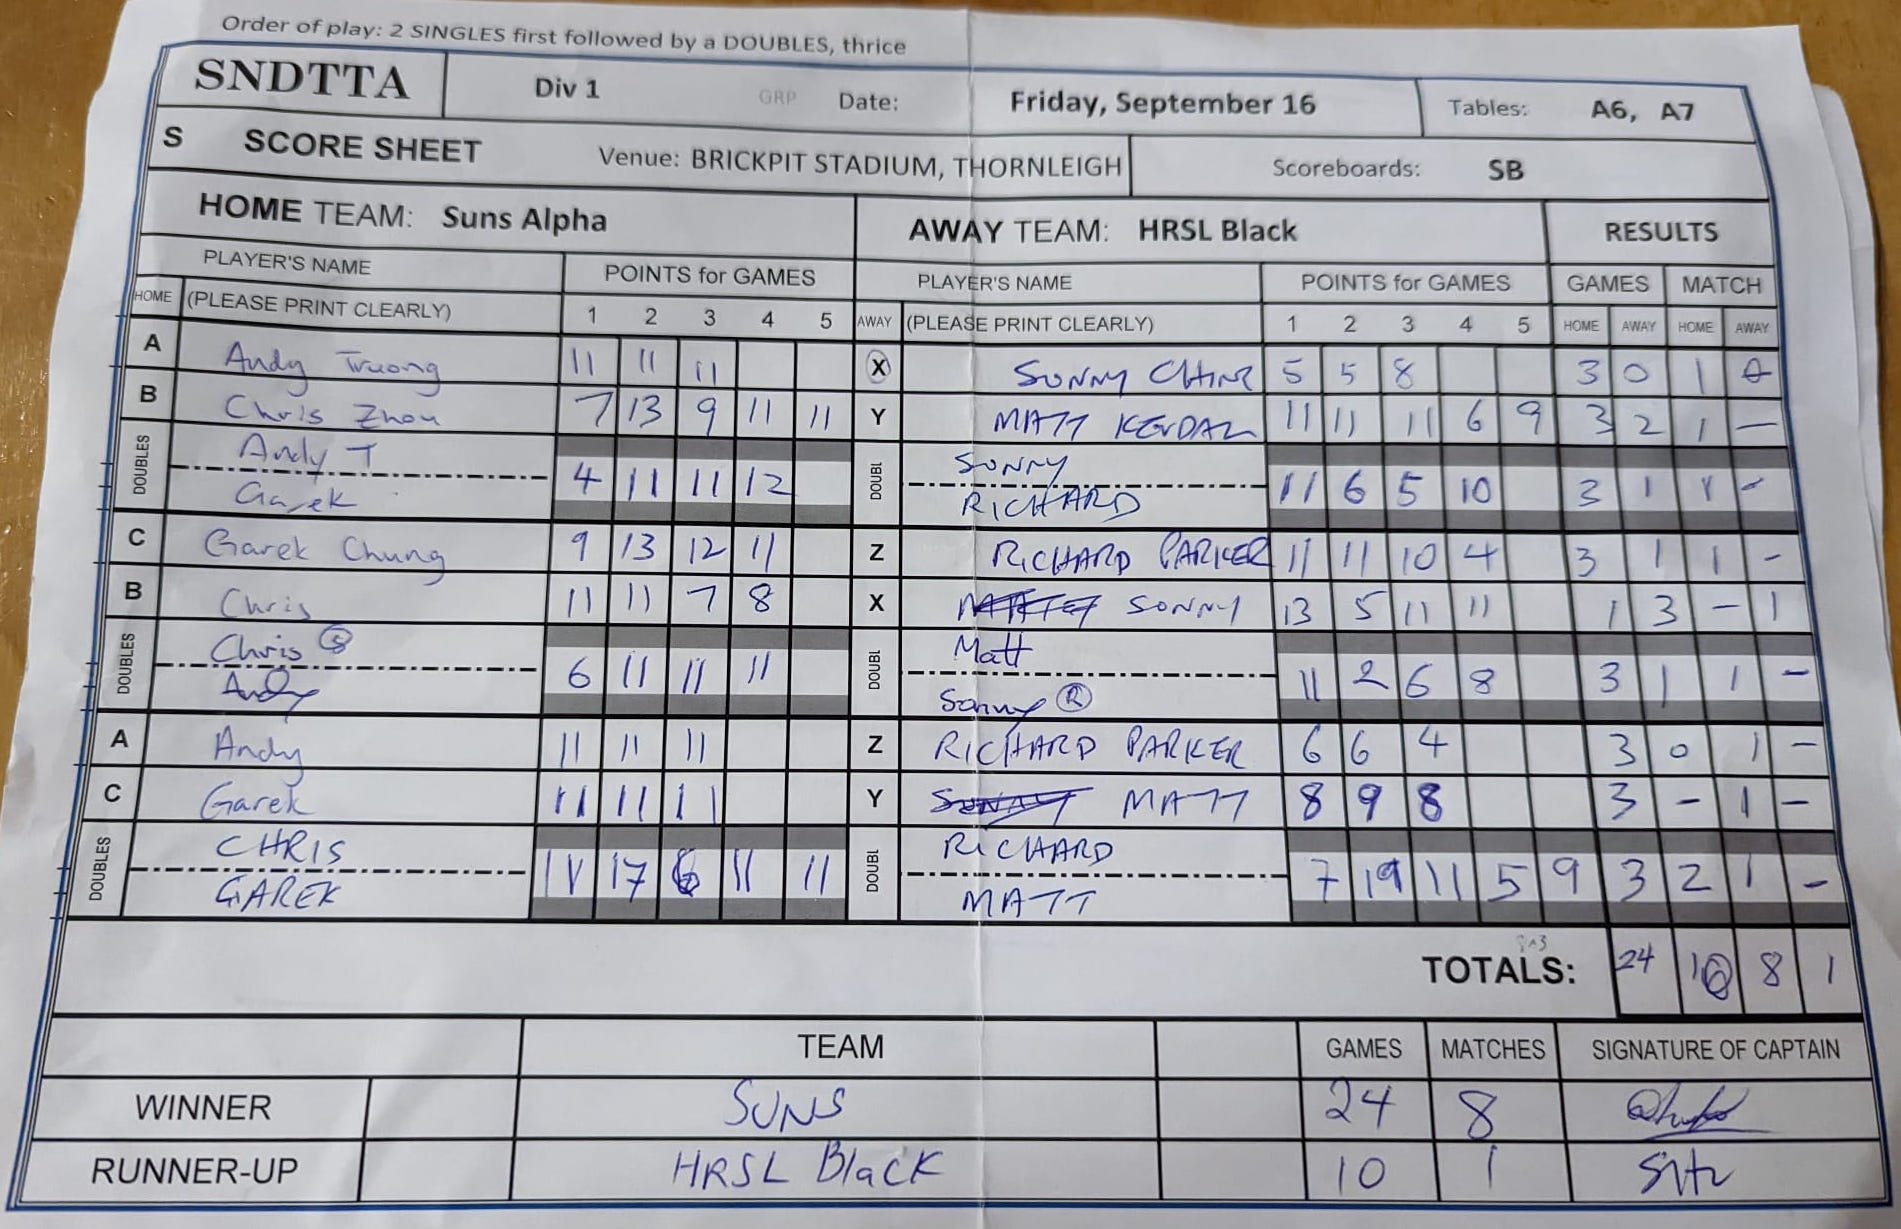 Order of play: 2 SINGLES first followed by a DOUBLES, thrice
SNDTTA Div 1 GRP Date: Friday, September 16 Tables: A6, A7
S SCORE SHEET Venue: BRICKPIT STADIUM, THORNLEIGH Scoreboards: SB
HOME TEAM: Suns Alpha AWAY TEAM: HRSL Black RESULTS
PLAYER'S NAME POINTS for GAMES PLAYER'S NAME POINTS for GAMES GAMES MATCH
HOME (PLEASE PRINT CLEARLY) 1 2 3 4 5 AWAY (PLEASE PRINT CLEARLY) 1 2 3 4 5 HOME AWAY HOME AWAY
A Andy Truong 11 11 11 X SUNNY 5 5 8 3 0 1
B Chris Zhou 7 13 9 11 11 Y MATT 11 11 11 6 9 3 2 1 —
Andy T SONNY
DOUBLES 4 11 11 12 DOUBL 11 6 5 10 3 1 1 -
Garek RICHARD
C Garek Chung 9 13 12 11 Z RICHARD PARKER 11 11 10 4 3 1 1 -
B Chris 11 11 7 8 X SONNY 13 5 11 11 1 3 - 1
Chris S Matt
DOUBLES 6 11 11 11 DOUBL 11 2 6 8 3 1 1 -
Andy Sonny R
A Andy 11 11 11 Z RICHARD PARKER 6 6 4 3 0 1 -
C Garek 11 11 11 Y MATT 8 9 8 3 - 1 -
CHRIS RICHARD
DOUBLES 11 17 6 11 11 DOUBL 7 19 11 5 9 3 2 1 -
GAREK MATT
TOTALS: 24 10 8 1
TEAM GAMES MATCHES SIGNATURE OF CAPTAIN
WINNER SUNS 24 8
RUNNER-UP HRSL Black 10 1